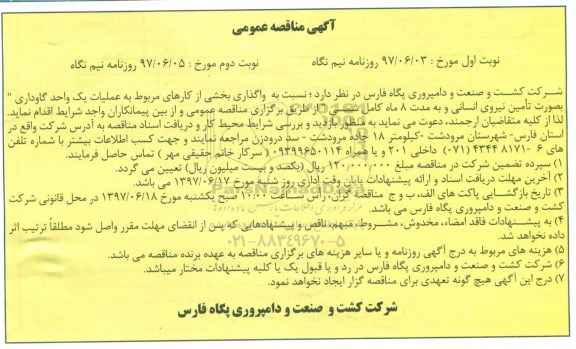 آگهی مناقصه عمومی
نوبت اول مورخ : ۹۷/۰۶/۰۳ روزنامه نیم نگاه
نوبت دوم مورخ : ۹۷/۰۶/۰۵ روزنامه نیم نگاه
شرکت کشت و صنعت و دامپروری پگاه فارس در نظر دارد ؛ نسبت به واگذاری بخشی از کارهای مربوط به عملیات یک واحد گاوداری "
بصورت تأمین نیروی انسانی و به مدت ۸ ماه کامل شمسی " از طریق برگزاری مناقصه عمومی و از بین پیمانکاران واجد شرایط اقدام نماید.
لذا از کلیه متقاضیان ارجمند، دعوت می نماید به منظور بازدید و بررسی شرایط محیط کار و دریافت اسناد مناقصه به آدرس شرکت واقع در
استان فارس- شهرستان مرودشت -کیلومتر ۱۸ جاده مرودشت - سد درودزن مراجعه نمایند و جهت کسب اطلاعات بیشتر با شماره تلفن
های ۶ -۴۳۴۴۸۱۷۱ (۰۷۱) داخلی ۲۰۱ و یا همراه ۰۹۳۹۹۶۵۰۱۱۴ ( سرکار خانم حقیقی مهر ) تماس حاصل فرمایند.
۱) سپرده تضمین شرکت در مناقصه مبلغ ۱۲۰/۰۰۰/۰۰۰ ریال (یکصد و بیست میلیون ریال) تعیین می گردد.
۲) آخرین مهلت دریافت اسناد و ارائه پیشنهادات پایان وقت اداری روز شنبه مورخ ۱۳۹۷/۰۶/۱۷ می باشد.
۳) تاریخ بازگشایی پاکت های الف، ب و ج مناقصه گران، رأس ساعت ۱۰:۰۰ صبح یکشنبه مورخ ۱۳۹۷/۰۶/۱۸ در محل قانونی شرکت
کشت و صنعت و دامپروری پگاه فارس می باشد.
۴) به پیشنهادات فاقد امضاء، مخدوش، مشروط، مبهم، ناقص و پیشنهادهایی که پس از انقضای مهلت مقرر واصل شود مطلقاً ترتیب اثر
داده نخواهد شد.
۵) هزینه های مربوط به درج آگهی روزنامه و یا سایر هزینه های برگزاری مناقصه به عهده برنده مناقصه می باشد.
۶) شرکت کشت و صنعت و دامپروری پگاه فارس در رد و یا قبول یک یا کلیه پیشنهادات مختار میباشد.
۷) درج این آگهی هیچ گونه تعهدی برای مناقصه گزار ایجاد نخواهد نمود.
شرکت کشت و صنعت و دامپروری پگاه فارس
۰۲۱-۸۸۳۴۹۶۷۰-۵